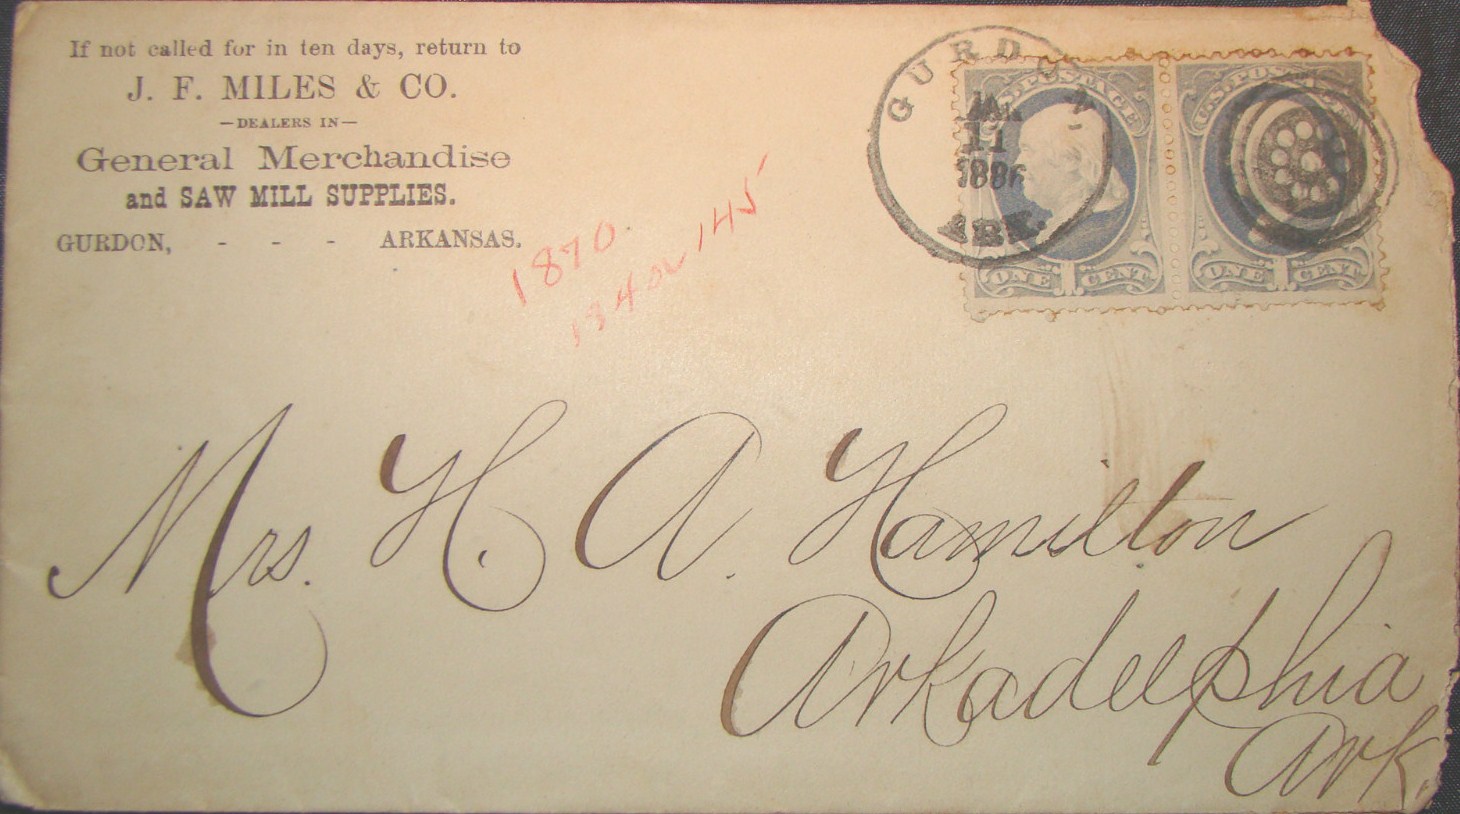 If not called for in ten days, return to
J. F. MILES & CO.
—DEALERS IN—
General Merchandise
and SAW MILL SUPPLIES.
GURDON, - - - ARKANSAS.
GURDON
JAN
11
1886
ARK.
U.S. POSTAGE
ONE 1 CENT
U.S. POSTAGE
ONE 1 CENT
1870.
134 or 145
Mrs. H. A. Hamilton
Arkadelphia
Ark.